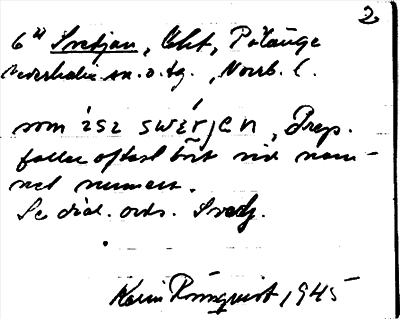 2.
6) Svedjan, lht, Pålänge
Nederkalix sn. o. tg., Norrb. l.
som ɪ̀sɪ swɛ́rjɛn, Prep.
faller oftast bort vid nam-
net numera.
Se dial. ord. Svedj.
Karin Rönnquist, 1945